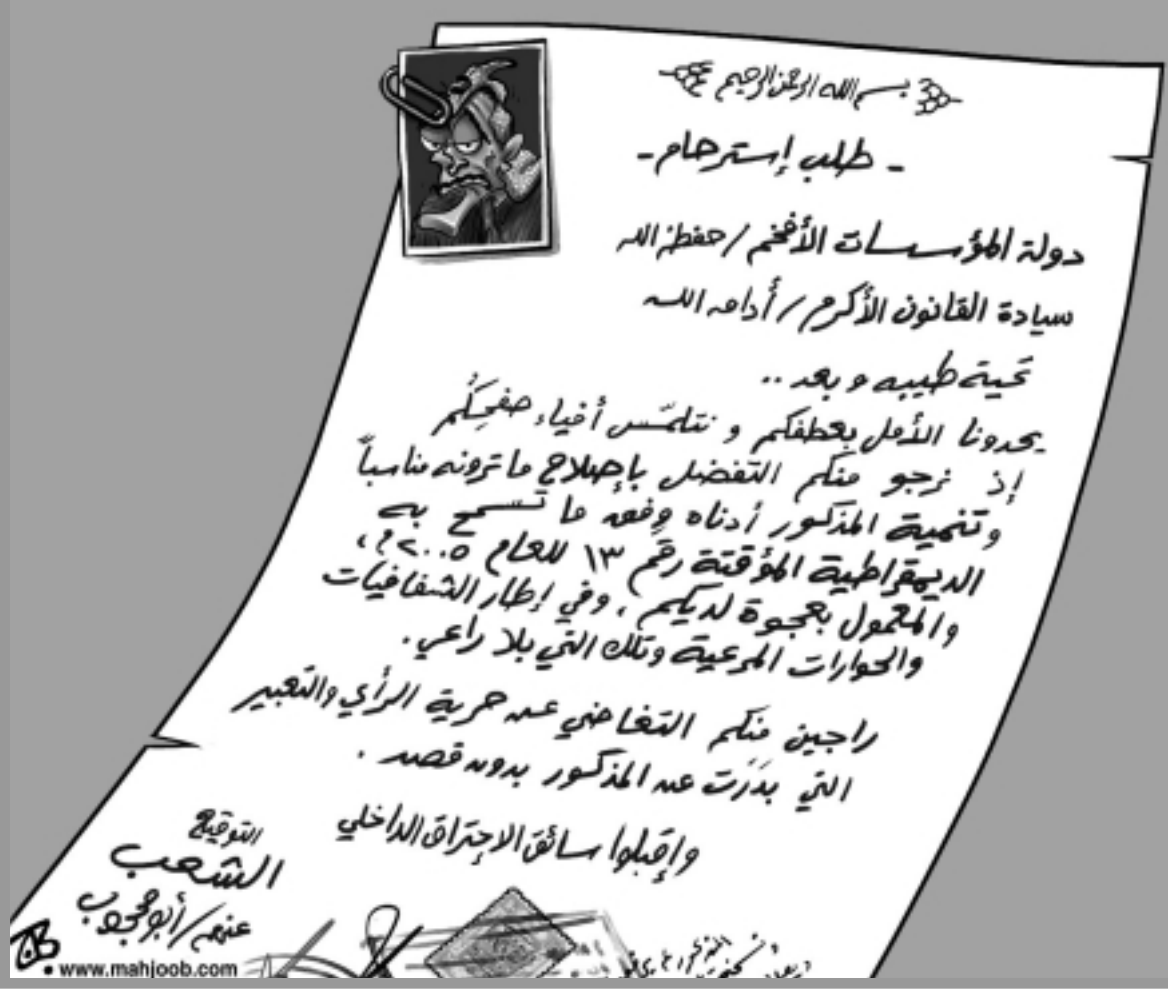 بسم الله الرحمن الرحيم
- طلب إسترحام -
دولة المؤسسات الأفخم / حفظه الله
سيادة القانون الأكرم / أدامه الله
تحية طيبه و بعد ..
يحدونا الأمل بعطفكم و نتلمّس أفياء صفحِكُم
إذ نرجو منكم التفضل بإصلاح ما ترونه مناسباً
وتنمية المذكور أدناه وفق ما تسمح به
الديمقراطية المؤقتة رقم ١٣ للعام ٢٠٠٥م،
والمعمول بعجوة لديكم ، وفي إطار الشفافيات
والحوارات المرعية وتلك التي بلا راعي .
راجين منكم التغاضي عن حرية الرأي والتعبير
التي بَدَرَت عن المذكور بدون قصد .
وإقبلوا سائق الإحتراق الداخلي
التوقيع
الشعب
عنهم / أبو محجوب
www.mahjoob.com